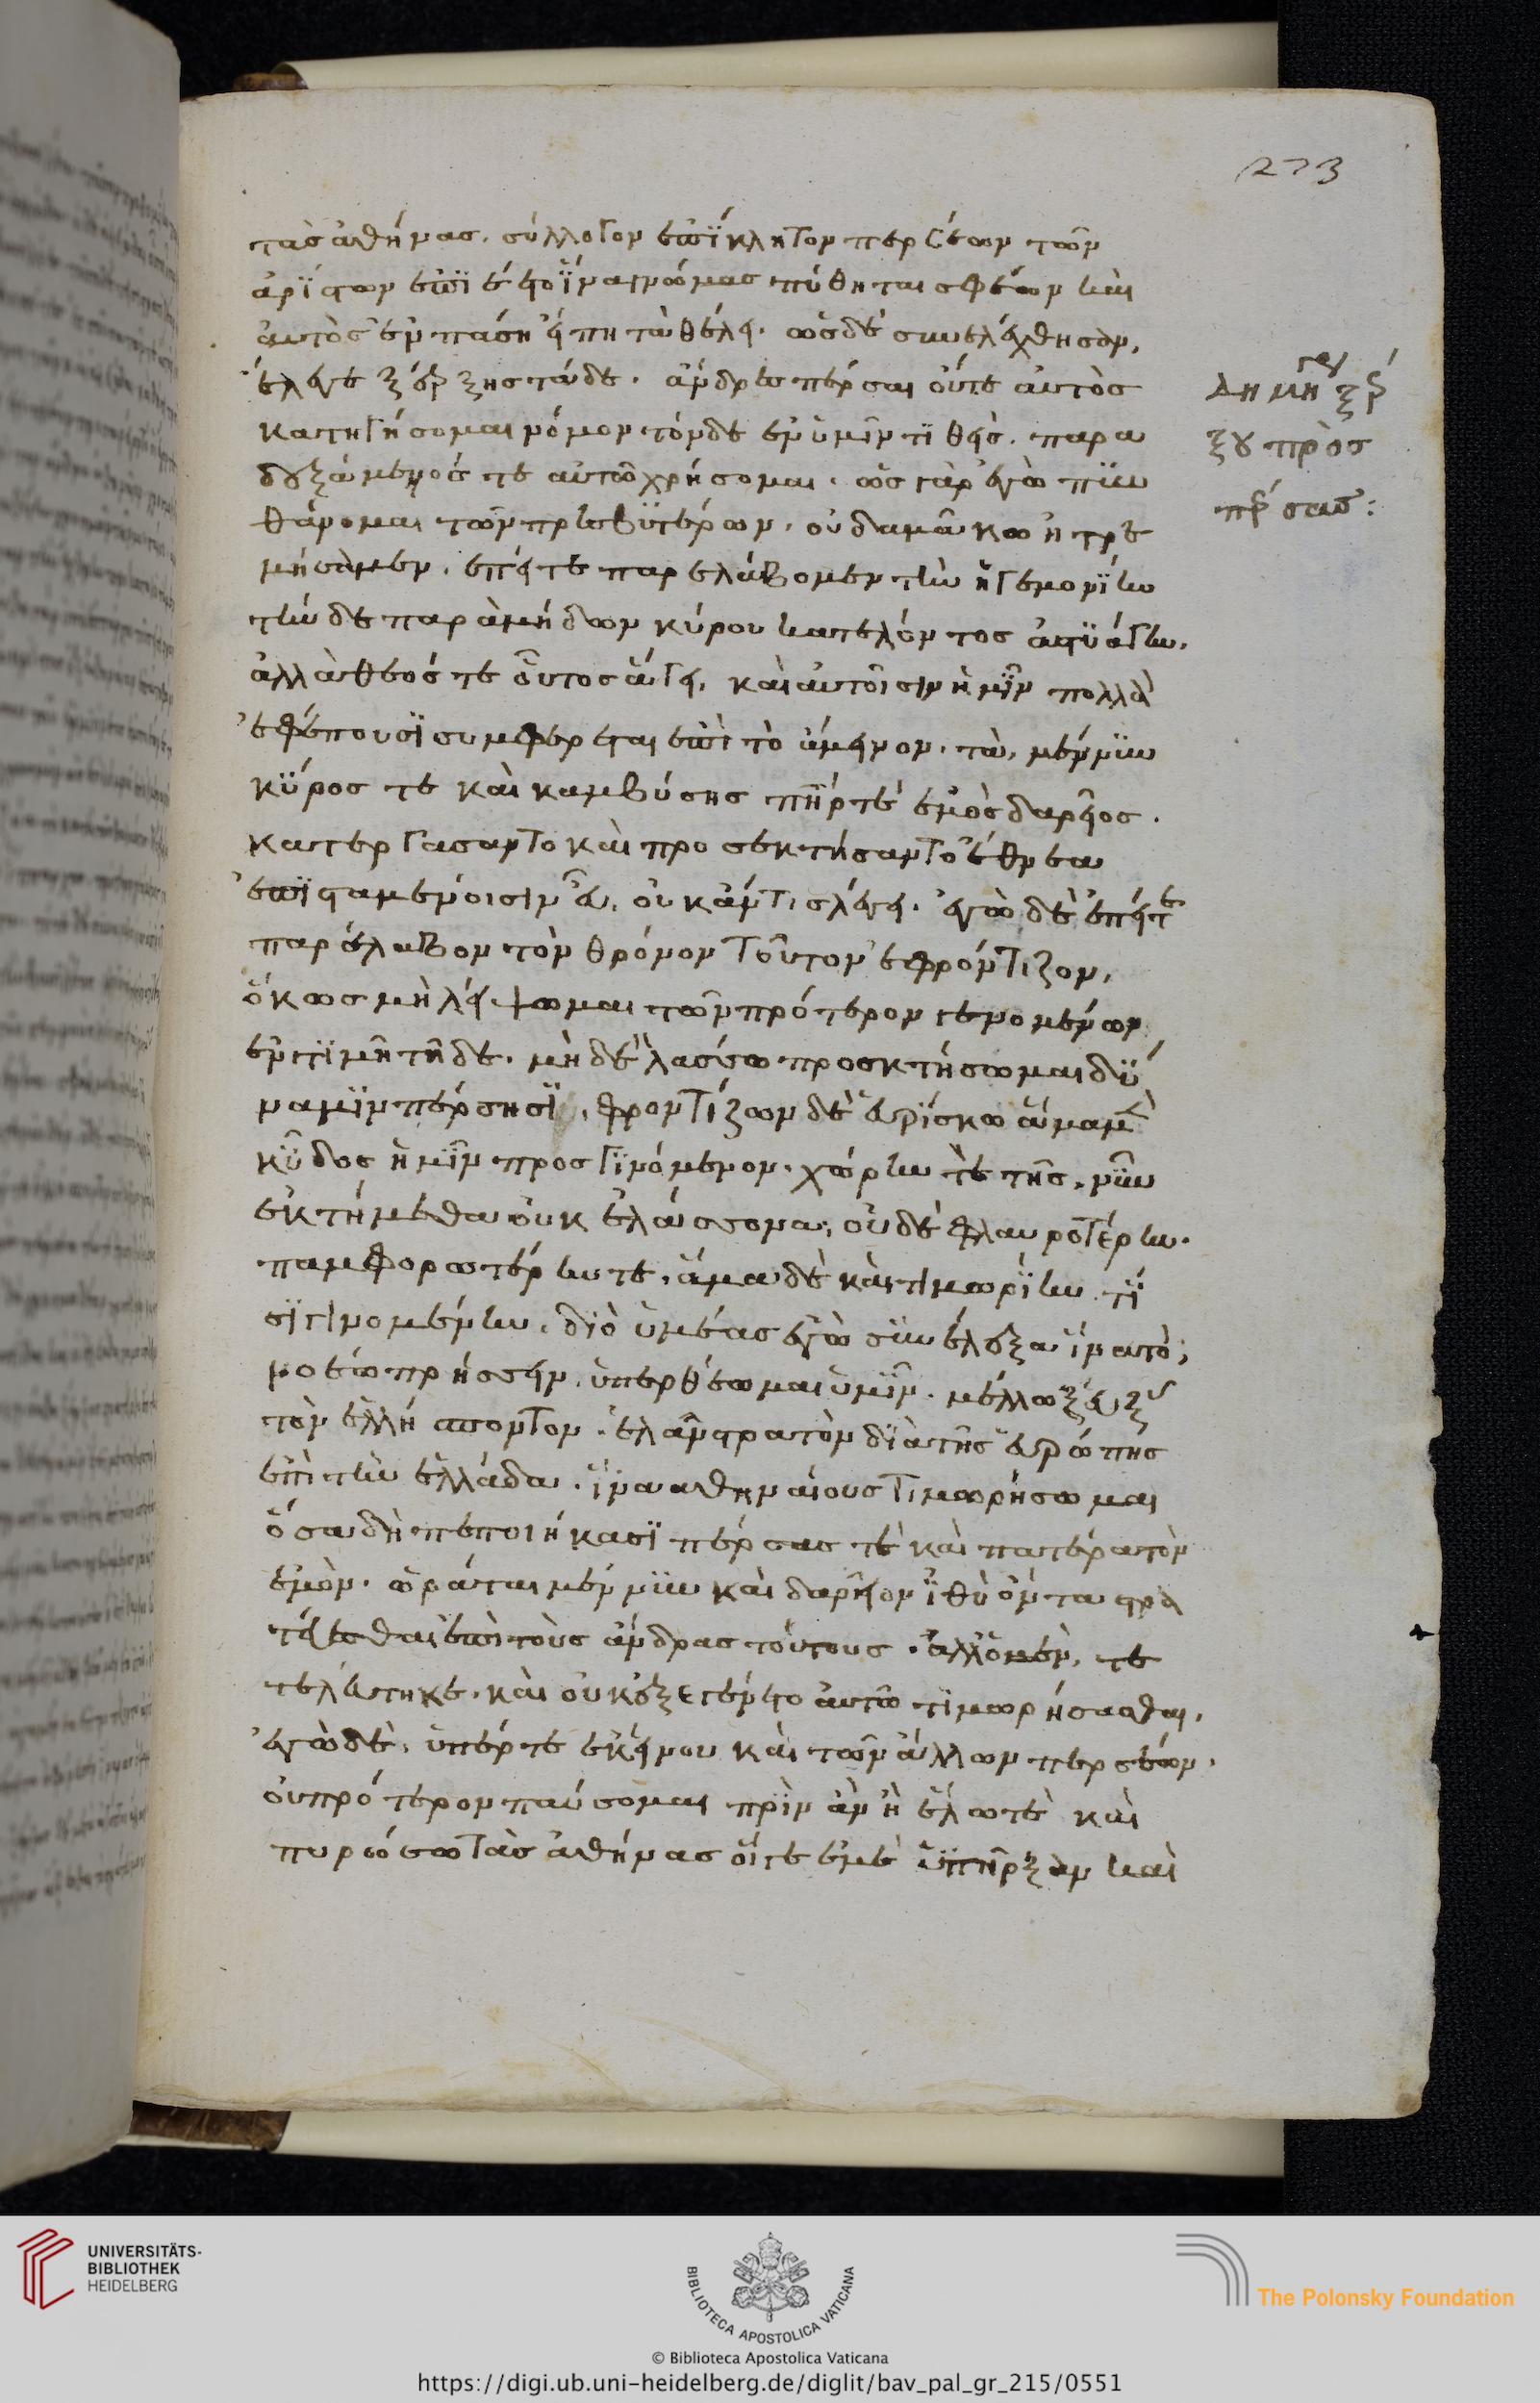 273
τὰς ἀθήνας. σύλλογον ἐπίκλητον περσέων τῶν
ἀρίστων ἐποιέετο ἵνα γνώμας πύθηται σφέων καὶ
αὐτὸς ἐν πᾶσι εἴπῃ τὰ θέλει. ὡς δὲ συνελέχθησαν,
ἔλεγε ξέρξης τάδε. ἄνδρες πέρσαι οὔτε αὐτὸς
κατηγήσομαι νόμον τόνδε ἐν ὑμῖν τιθεὶς. παρα
δεξάμενός τε αὐτῶ χρήσομαι. ὡς γὰρ ἐγὼ πυν
θάνομαι τῶν πρεσβυτέρων. οὐδαμᾶ κω ἠτρε
μήσαμεν. ἐπεί τε παρελάβομεν τὴν ἡγεμονίην
τήνδε παρὰ μήδων κύρου κατελόντος ἀστυάγην.
ἀλλὰ θεός τε οὕτος ἄγει. καὶ αὐτοῖσιν ἡμῖν πολλὰ
ἐφέπουσι συμφέρεται ἐπὶ τὸ ἄμεινον. τὰ, μέν νυν
κῦρος τε καὶ καμβύσης πατήρ τε ἐμὸς δαρεῖος.
κατεργάσαντο καὶ προσεκτήσαντο ἔθνεα
ἐπισταμένοισιν εὖ. οὐκ ἄν τις λέγει. ἐγὼ δὲ ἐπείτε
παρέλαβον τὸν θρόνον τοῦτον ἐφρόντιζον,
ὅκως μὴ λείψωμαι τῶν πρότερον γενομένων
ἐν τιμῆ τῆδε. μὴ δὲ ἐλάσσω προσκτήσωμαι δύ
ναμιν πέρσησι. φροντίζων δὲ εὑρίσκω ἅμα μὲν
κῦδος ἡμῖν προσγινόμενον. χώρην τὲ τῆς, νῦν
ἐκτήμεθα οὐκ ἐλάσσονα, οὐδὲ φλαυροτέρην.
παμφορωτέρην τε. ἅμα δὲ καὶ τιμωρίην τί
σι γινομένην. διὸ ὑμέας ἐγὼ συνέλεξα ἵνα τὸ,
νοέω πρήσσειν. ὑπερθέωμαι ὑμῖν. μέλλω ζεύξας
τὸν ἑλλήσποντον. ἐλᾶν στρατὸν διὰ τῆς εὐρώπης
ἐπὶ τὴν ἑλλάδα. ἵνα ἀθηναίους τιμωρήσωμαι
ὅσα δὴ πεποιήκασι πέρσας τὲ καὶ πατέρα τὸν
ἐμόν. ὡρᾶται μέν νυν καὶ δαρεῖον ἰθὺ ὄντα στρα
τεύεσθαι ἐπὶ τοὺς ἄνδρας τούτους. ἀλλ' ὁ μὲν, τε
τελεύτηκε. καὶ οὐκ ἐξεγένετο αὐτῶ τιμωρήσασθαι.
ἐγὼ δὲ, ὑπέρ τε ἐκείνου καὶ τῶν ἄλλων περσέων.
οὐ πρότερον παύσομαι πρὶν ἂν ἢ ἕλω τὲ καὶ
πυρώσω τὰς ἀθήνας οἵ τε ἐμὲ ὑπῆρξαν καὶ
δημηγ ξέρ
ξου πρὸς
πέρσας:
UNIVERSITÄTS-
BIBLIOTHEK
HEIDELBERG
BIBLIOTECA APOSTOLICA VATICANA
© Biblioteca Apostolica Vaticana
The Polonsky Foundation
https://digi.ub.uni-heidelberg.de/diglit/bav_pal_gr_215/0551